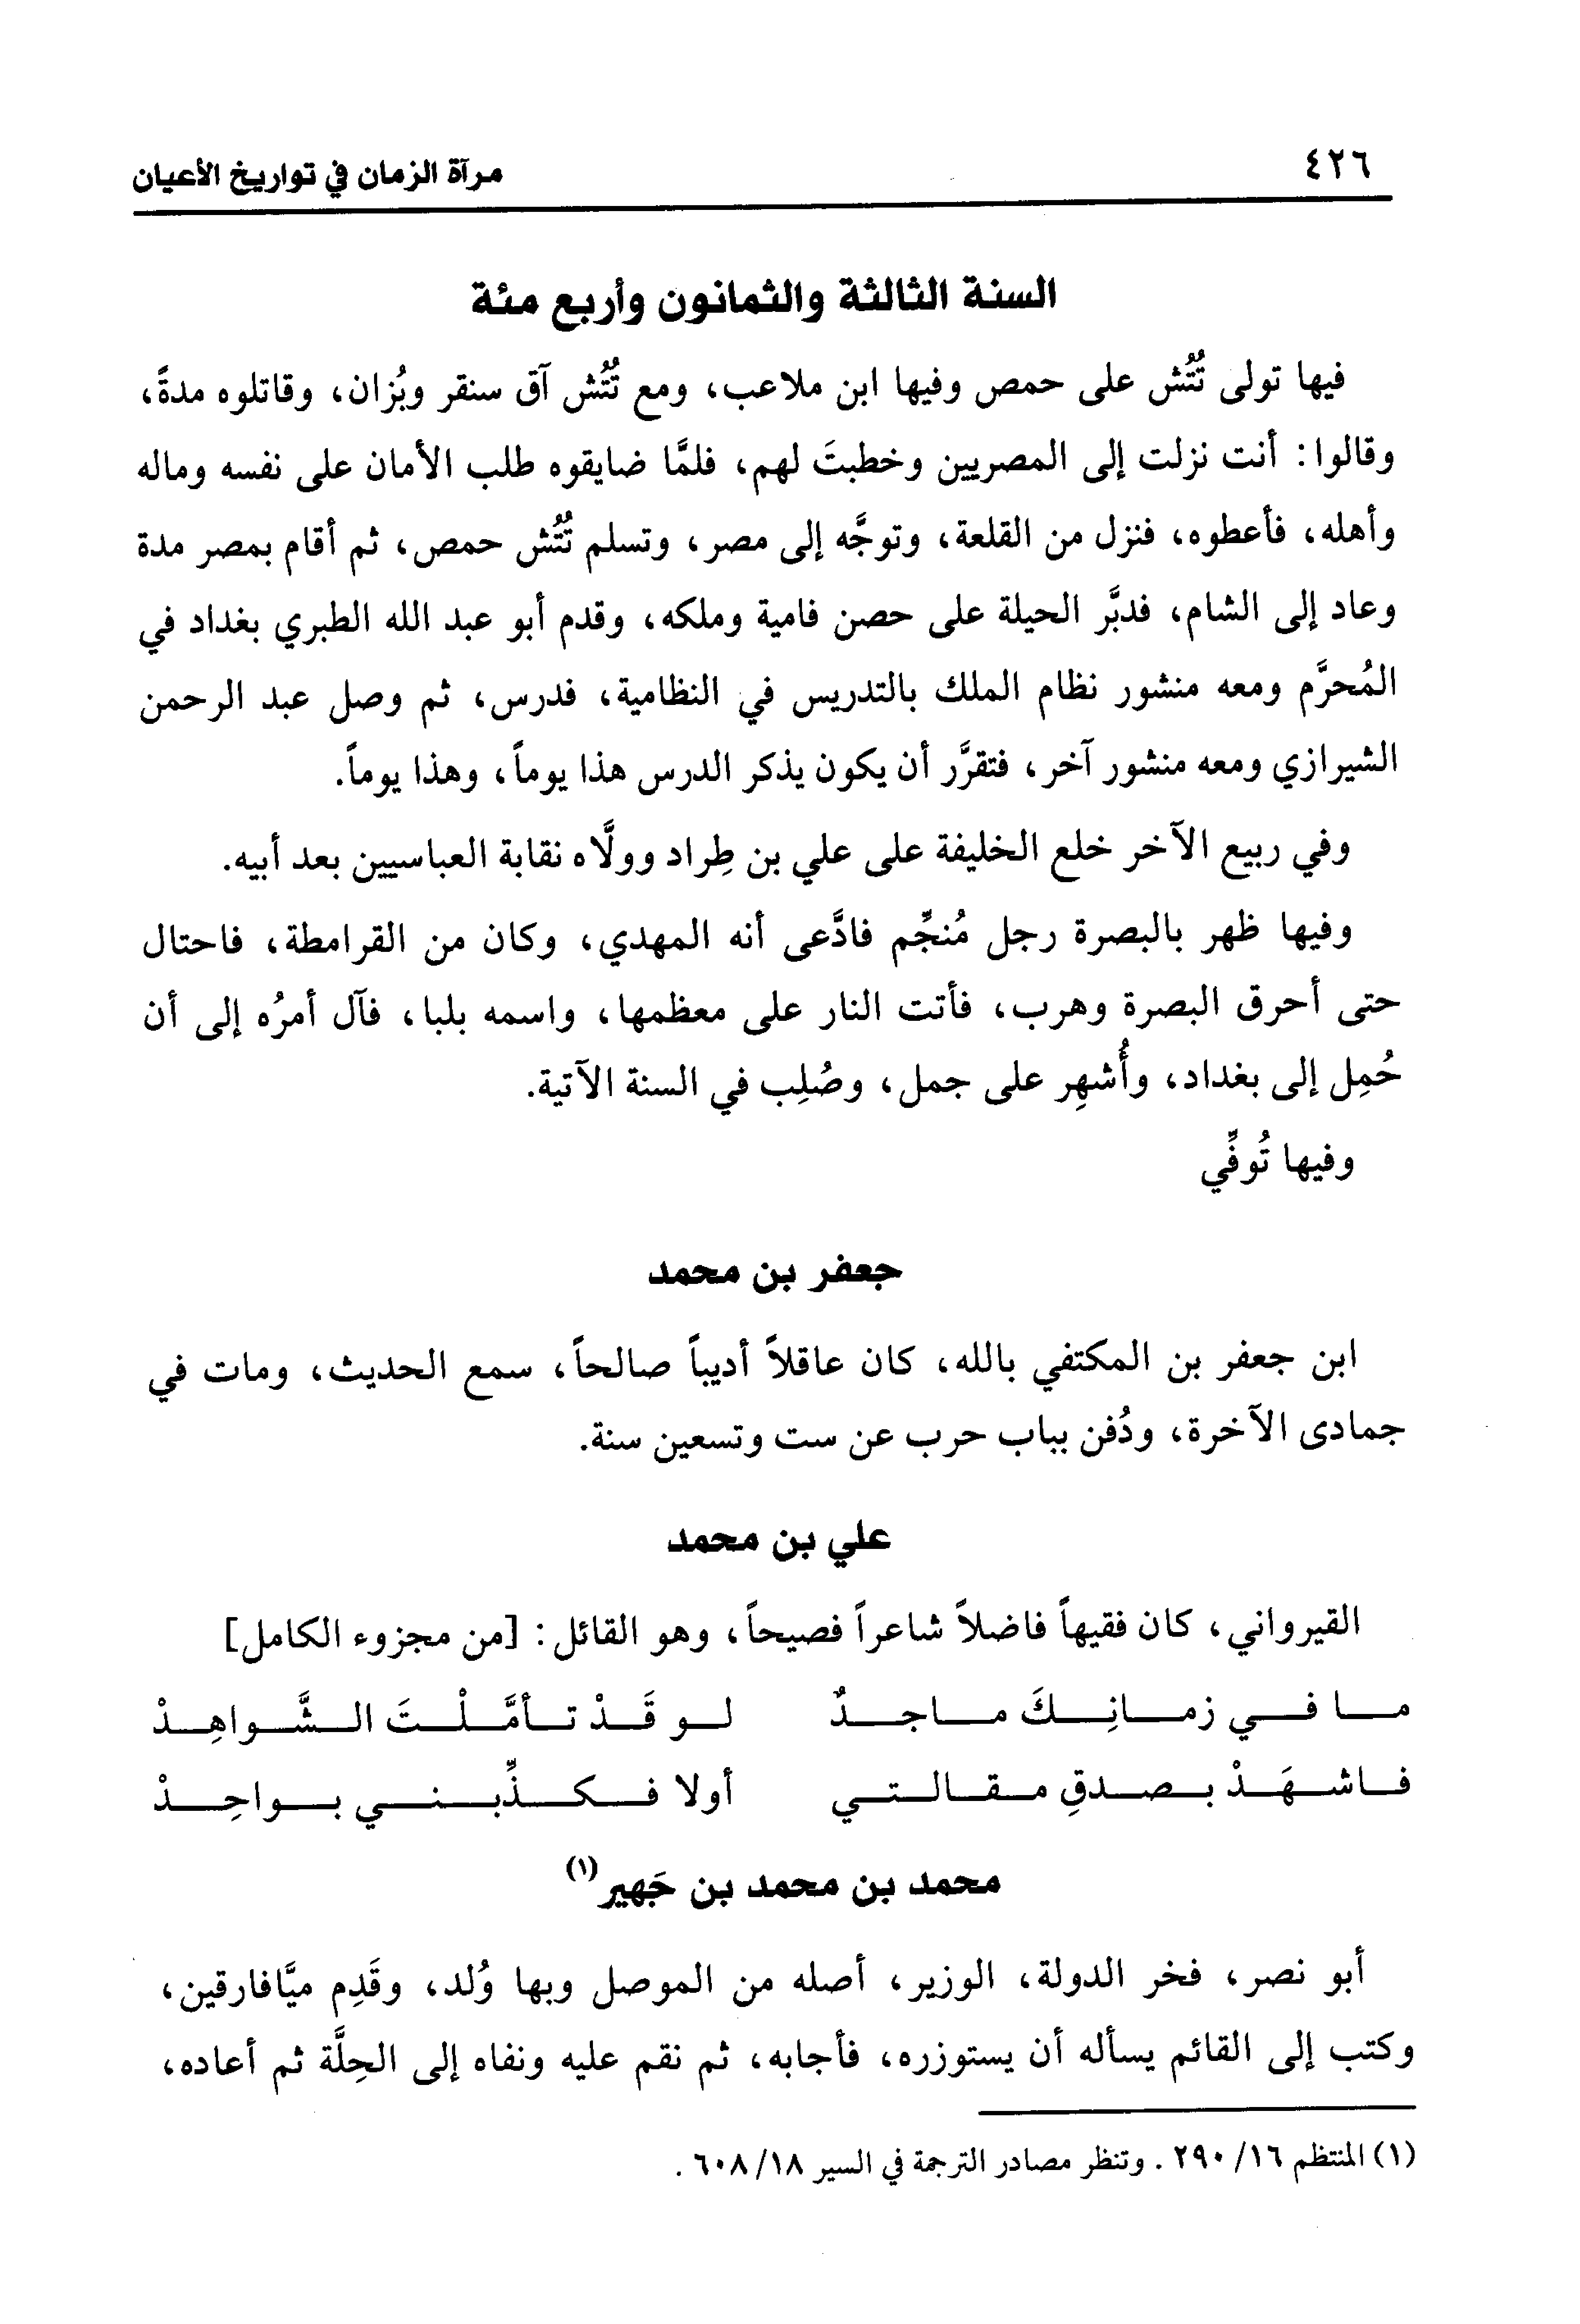 ٤٢٦
مرآة الزمان في تواريخ الأعيان
السنة الثالثة والثمانون وأربع مئة
فيها تولى تُتُش على حمص وفيها ابن ملاعب، ومع تُتُش آق سنقر وبُزان، وقاتلوه مدةً،
وقالوا: أنت نزلت إلى المصريين وخطبتَ لهم، فلمَّا ضايقوه طلب الأمان على نفسه وماله
وأهله، فأعطوه، فنزل من القلعة، وتوجَّه إلى مصر، وتسلم تُتُش حمص، ثم أقام بمصر مدة
وعاد إلى الشام، فدبَّر الحيلة على حصن فامية وملكه، وقدم أبو عبد الله الطبري بغداد في
المُحرَّم ومعه منشور نظام الملك بالتدريس في النظامية، فدرس، ثم وصل عبد الرحمن
الشيرازي ومعه منشور آخر، فتقرَّر أن يكون يذكر الدرس هذا يوماً، وهذا يوماً.
وفي ربيع الآخر خلع الخليفة على علي بن طِراد وولَّاه نقابة العباسيين بعد أبيه.
وفيها ظهر بالبصرة رجل مُنجِّم فادَّعى أنه المهدي، وكان من القرامطة، فاحتال
حتى أحرق البصرة وهرب، فأتت النار على معظمها، واسمه بلبا، فآل أمرُه إلى أن
حُمِل إلى بغداد، وأُشهِر على جمل، وصُلِب في السنة الآتية.
وفيها تُوفِّي
جعفر بن محمد
ابن جعفر بن المكتفي بالله، كان عاقلاً أديباً صالحاً، سمع الحديث، ومات في
جمادى الآخرة، ودُفن بباب حرب عن ست وتسعين سنة.
علي بن محمد
القيرواني، كان فقيهاً فاضلاً شاعراً فصيحاً، وهو القائل: [من مجزوء الكامل]
ما في زمانِكَ ماجدٌ لو قَدْ تأمَّلْتَ الشَّواهِدْ
فاشهَدْ بصدقِ مقالتي أولا فكذِّبني بواحِدْ
محمد بن محمد بن جَهير(١)
أبو نصر، فخر الدولة، الوزير، أصله من الموصل وبها وُلد، وقَدِم ميَّافارقين،
وكتب إلى القائم يسأله أن يستوزره، فأجابه، ثم نقم عليه ونفاه إلى الحِلَّة ثم أعاده،
(١) المنتظم ٢٩٠/١٦. وتنظر مصادر الترجمة في السير ٦٠٨/١٨.